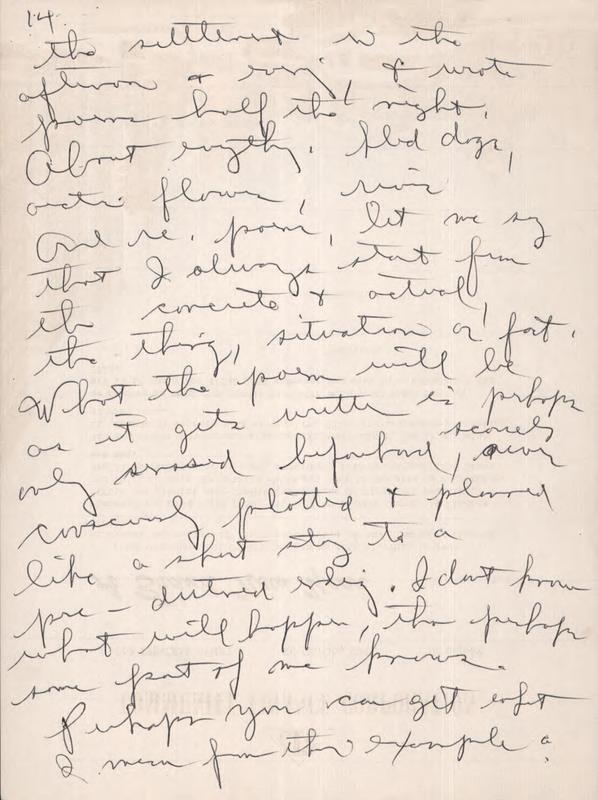 14.
the settlement in the
afternoon & evening, & wrote
poems half the night.
About everything. Sled dogs,
arctic flowers, rivers
And re. poems, let me say
that I always start from
the concrete & actual,
the thing, situation or fact.
What the poem will be
as it gets written is perhaps
only sensed beforehand, scarcely ever
consciously plotted & planned
like a short story to a
pre-destined ending. I dont know
what will happen, tho perhaps
some part of me knows.
Perhaps you can get what
I mean from this example: